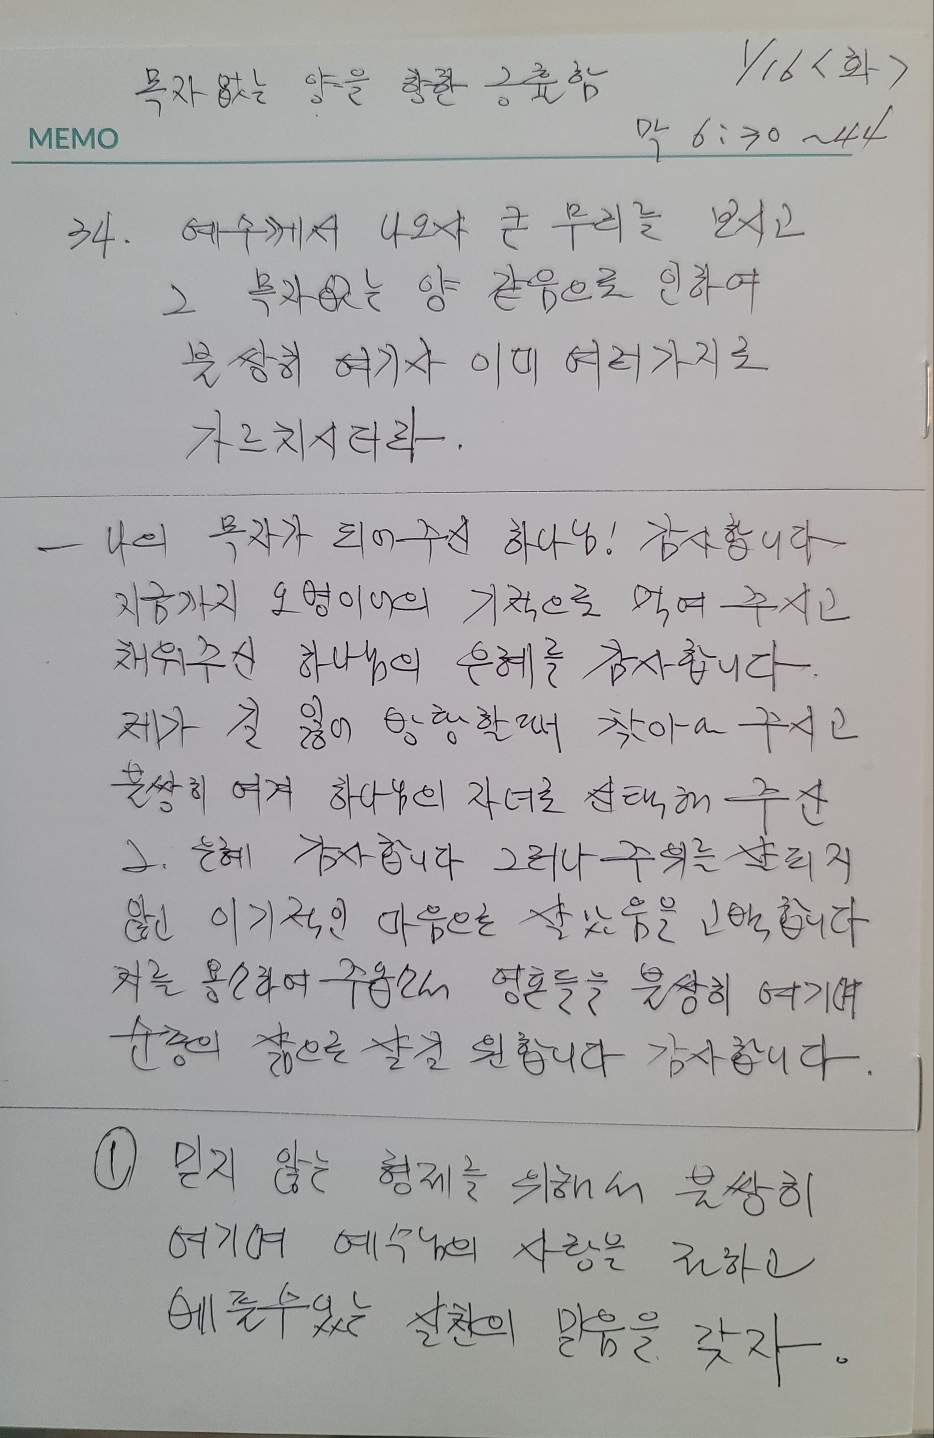 1/16 <화>
목자 없는 양을 향한 긍휼함
MEMO
막 6:30 ~44
34. 예수께서 나오사 큰 무리를 보시고
그 목자 없는 양 같음으로 인하여
불쌍히 여기사 이에 여러가지로
가르치시더라.
- 나의 목자가 되어주신 하나님! 감사합니다
지금까지 오병이어의 기적으로 먹여 주시고
채워주신 하나님의 은혜를 감사합니다.
제가 길 잃어 방황할때 찾아와 주시고
불쌍히 여겨 하나님의 자녀로 선택해 주신
그. 은혜 감사합니다 그러나 주위를 살피지
않고 이기적인 마음으로 살았음을 고백합니다
저를 용서하여 주옵소서 영혼들을 불쌍히 여기며
순종의 삶으로 살길 원합니다 감사합니다.
① 믿지 않는 형제를 위해서 불쌍히
여기며 예수님의 사랑을 전하고
베풀수있는 실천의 믿음을 갖자.